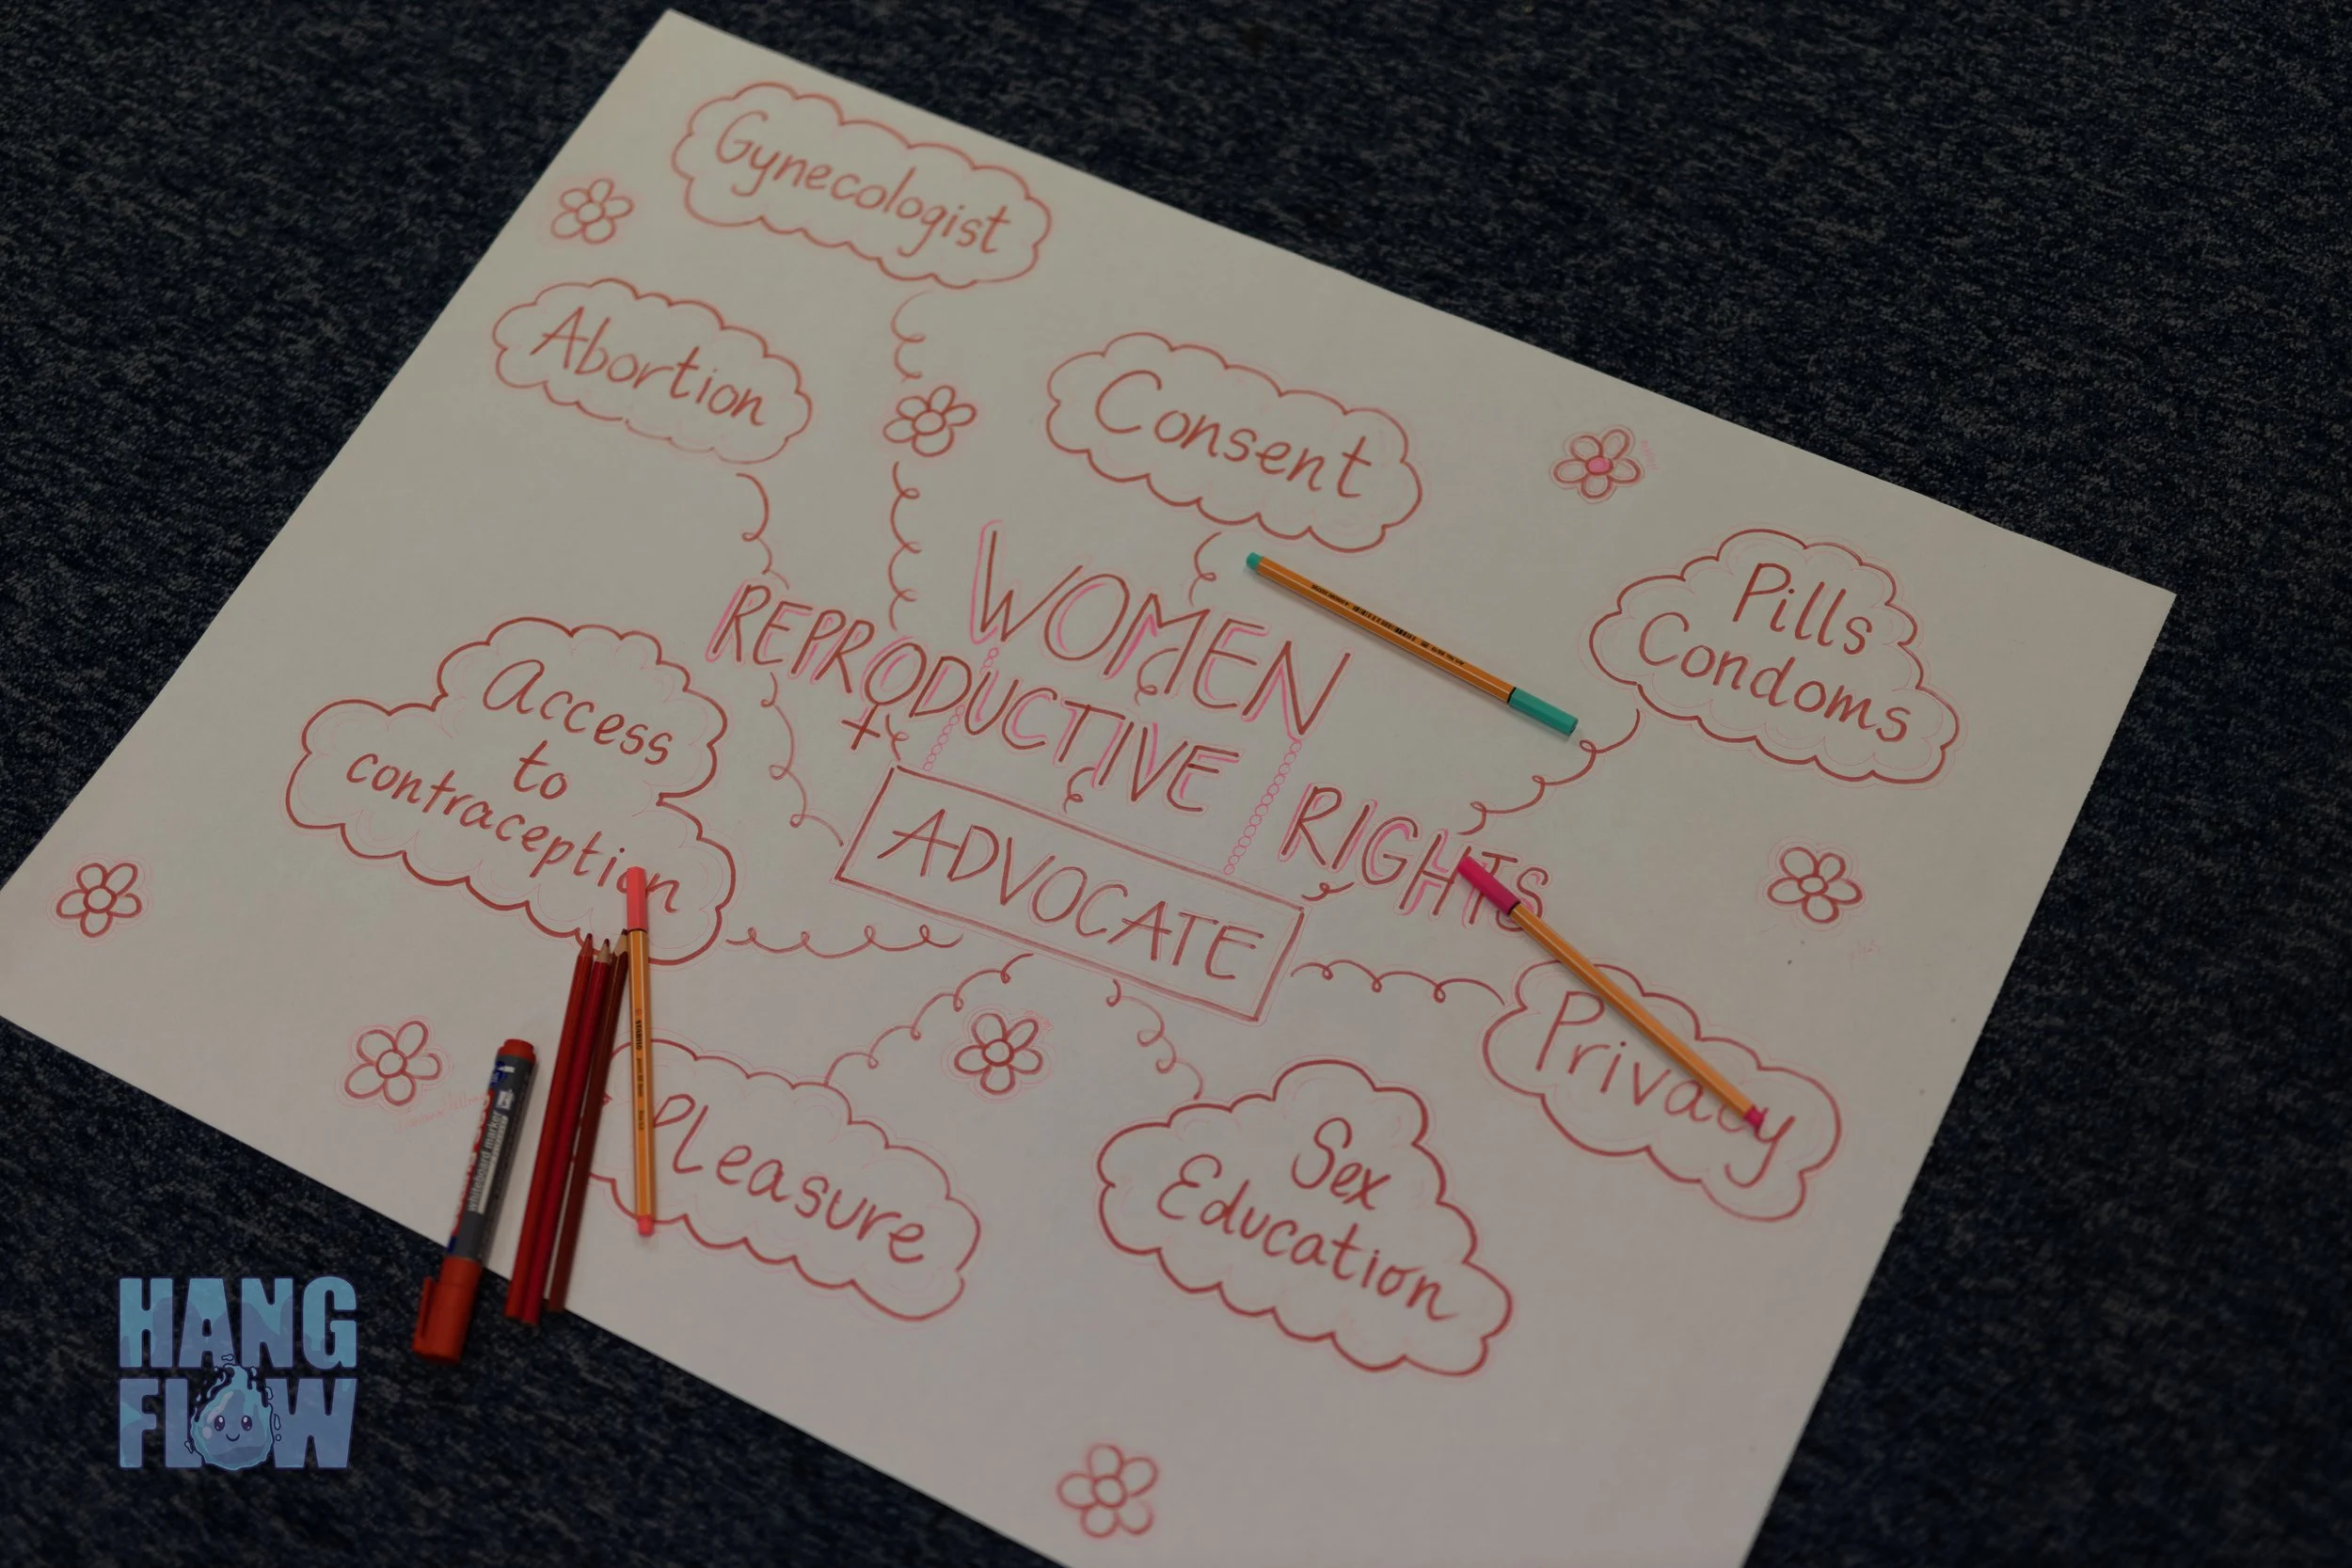 Gynecologist
Abortion
Consent
Pills
Condoms
WOMEN
REPRODUCTIVE
RIGHTS
+
ADVOCATE
Access
to
contraception
Privacy
Pleasure
Sex
Education
whiteboard marker
HANG
FLOW